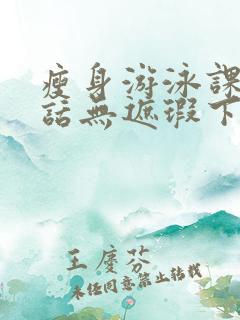 瘦身游泳課
話無遮瑕下
王慶芬
未經同意禁止轉載